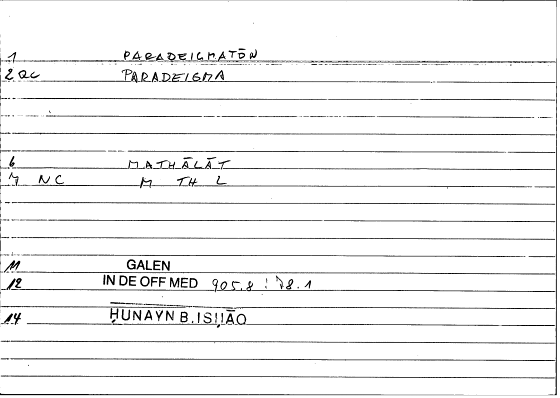 1 PARADEIGMATŌN
2 QC PARADEIGMA
6 MATHĀLĀT
7 NC M TH L
11 GALEN
12 IN DE OFF MED 905.8 : 78.1
14 ḤUNAYN B. ISḤĀQ